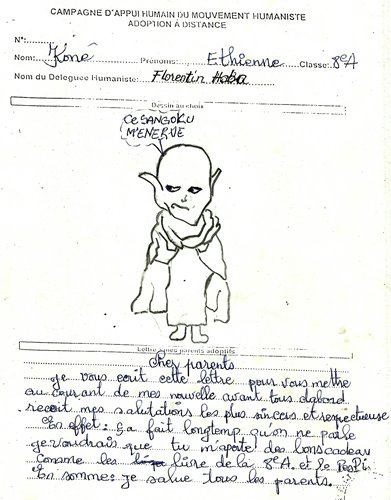 CAMPAGNE D'APPUI HUMAIN DU MOUVEMENT HUMANISTE
ADOPTION A DISTANCE
N°:
Nom: Koné Prénoms: Ethienne Classe: 8eA
Nom du Déléguée Humaniste: Florentin Haba
Dessin au choix
CE SANGOKU
M'ENERVE
Lettre à mes parents adoptifs
Cher parents
Je vous ecrit cette lettre pour vous mettre
au courant de mes nouvelle avant tous d'abord
recoit mes salutations les plus sincères et respectueuse
En effet: ça fait longtemp qu'on ne parle
je voudrais que tu m'aporte des bons cadeau
Comme les livre de la 8eA. et le
En somme: je salue tous les parents.